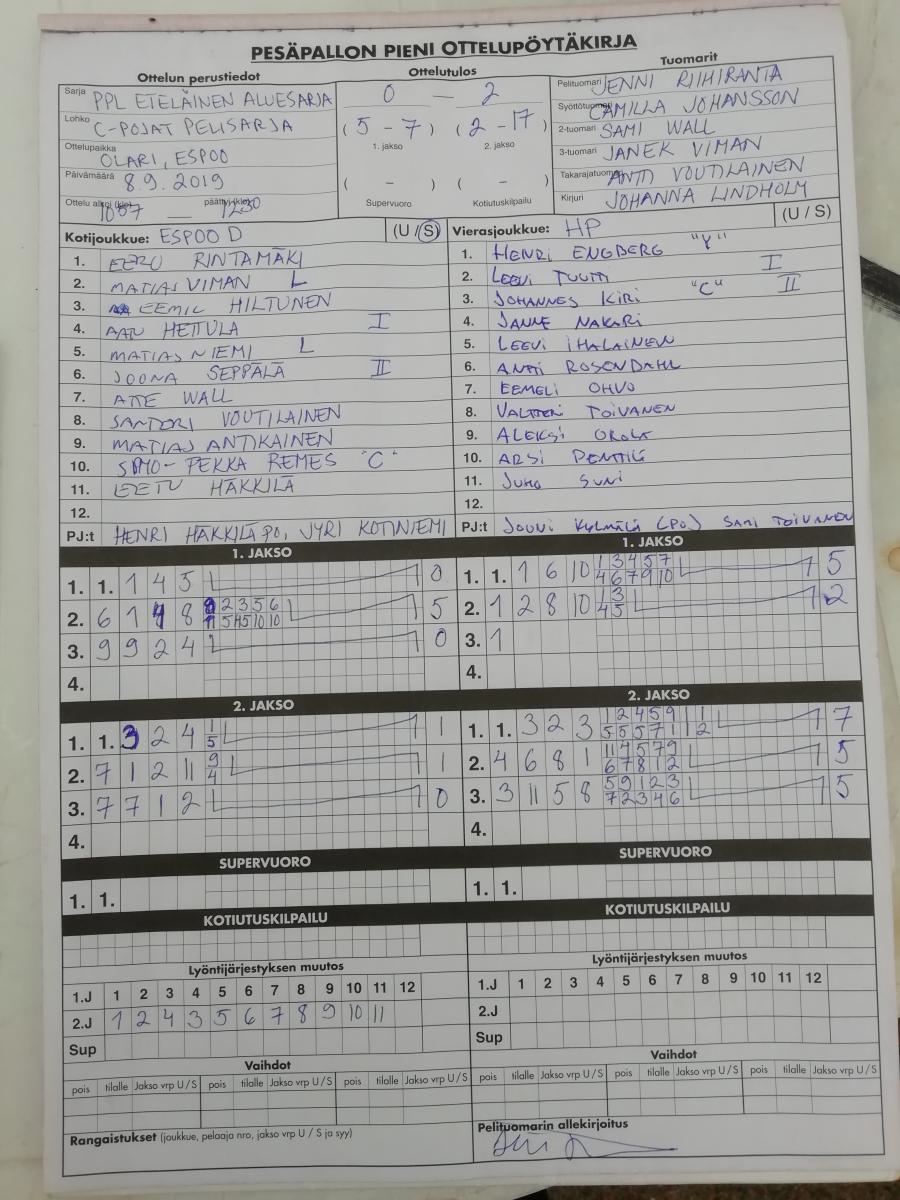 PESÄPALLON PIENI OTTELUPÖYTÄKIRJA
Ottelun perustiedot
Sarja PPL ETELÄINEN ALUESARJA
Lohko C-POJAT PELISARJA
Ottelupaikka OLARI, ESPOO
Päivämäärä 8.9. 2019
Ottelu alkoi (klo) 1057 — päättyi (klo) 1230
Ottelutulos
0 — 2
(5 - 7) (2 - 17)
1. jakso 2. jakso
( - ) ( - )
Supervuoro Kotiutuskilpailu
Tuomarit
Pelituomari JENNI RIIHIRANTA
Syöttötuomari CAMILLA JOHANSSON
2-tuomari SAMI WALL
3-tuomari JANEK VIMAN
Takarajatuomari ANTTI VOUTILAINEN
Kirjuri JOHANNA LINDHOLM
Kotijoukkue: ESPOO D (U / S)
1. EERO RINTAMÄKI
2. MATIAS VIMAN L
3. EEMIL HILTUNEN
4. AAU HETTULA I
5. MATIAS NIEMI L
6. JOONA SEPPÄLÄ II
7. ATTE WALL
8. SANTERI VOUTILAINEN
9. MATIAS ANTIKAINEN
10. SIMO-PEKKA REMES "C"
11. EETU HÄKKILÄ
12.
PJ:t HENRI HÄKKILÄ PO, JYRI KOTINIEMI
Vierasjoukkue: HP (U / S)
1. HENRI ENGBERG "Y"
2. LEEVI TUUTTI I
3. JOHANNES KIRI "C" II
4. JANNE NAKARI
5. LEEVI IHALAINEN
6. ANTTI ROSENDAHL
7. EEMELI OHVO
8. VALTTERI TOIVANEN
9. ALEKSI OROLA
10. ARSI PENTTILÄ
11. JUHO SUNI
12.
PJ:t JOUNI KYLMÄLÄ (PO) SAMI TOIVANEN
1. JAKSO
1. 1. 1 4 5 0
2. 6 1 4 8 2 3 5 6 5
3. 9 9 2 4 0
4.
2. JAKSO
1. 1. 3 2 4 1 5 1
2. 7 1 2 11 9 4 1
3. 7 7 1 2 0
4.
SUPERVUORO
1. 1.
KOTIUTUSKILPAILU
Lyöntijärjestyksen muutos
1.J 1 2 3 4 5 6 7 8 9 10 11 12
2.J 1 2 4 3 5 6 7 8 9 10 11
Sup
Vaihdot
pois tilalle Jakso vrp U / S pois tilalle Jakso vrp U / S pois tilalle Jakso vrp U / S
Rangaistukset (joukkue, pelaaja nro, jakso vrp U / S ja syy)
1. JAKSO
1. 1. 1 6 10 1 3 4 5 7 5
4 6 7 9 10
2. 1 2 8 10 1 3 2
4 5
3. 1
4.
2. JAKSO
1. 1. 3 2 3 1 2 4 5 9 1 1 7
5 5 5 7 1 1 2
2. 4 6 8 1 11 4 5 7 9 5
6 7 8 1 2
3. 3 11 5 8 5 9 1 2 3 5
7 2 3 4 6
4.
SUPERVUORO
1. 1.
KOTIUTUSKILPAILU
Lyöntijärjestyksen muutos
1.J 1 2 3 4 5 6 7 8 9 10 11 12
2.J
Sup
Vaihdot
pois tilalle Jakso vrp U / S pois tilalle Jakso vrp U / S pois tilalle Jakso vrp U / S
Pelituomarin allekirjoitus